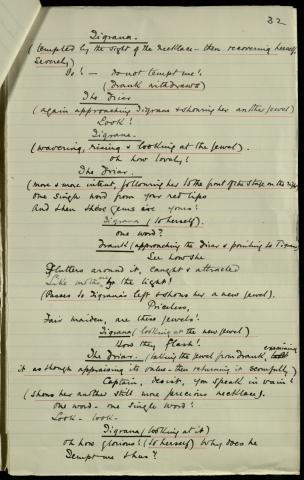 32
Digrana.
(tempted by the sight of the necklace - then recovering herself.
severely)
No! - do not tempt me!
(Drank withdraws)
The Friar
(again approaching Digrana & showing her another jewel)
Look!
Digrana.
(wavering, rising & looking at the jewel).
oh how lovely!
The Friar.
(more & more intent, following her to the front of the stage on the right)
one single word from your red lips
And then these gems are yours!
Digrana (to herself).
one word?
Drank (approaching the Friar & pointing to Digrana)
See how she
Flutters around it, caught & attracted
Like moths by the light!
(Passes to Digrana's left & shows her a new jewel).
Priceless,
Fair maiden, are these jewels!
Digrana (looking at the new jewel)
How they flash!
The Friar. (taking the jewel from Drank, examining
it as though appraising its value - then returning it scornfully)
Captain, desist, you speak in vain!
(shows her another still more precious necklace).
one word - one single word!
Look - look -
Digrana (looking at it)
oh how glorious! (to herself) Why does he
Tempt me thus?